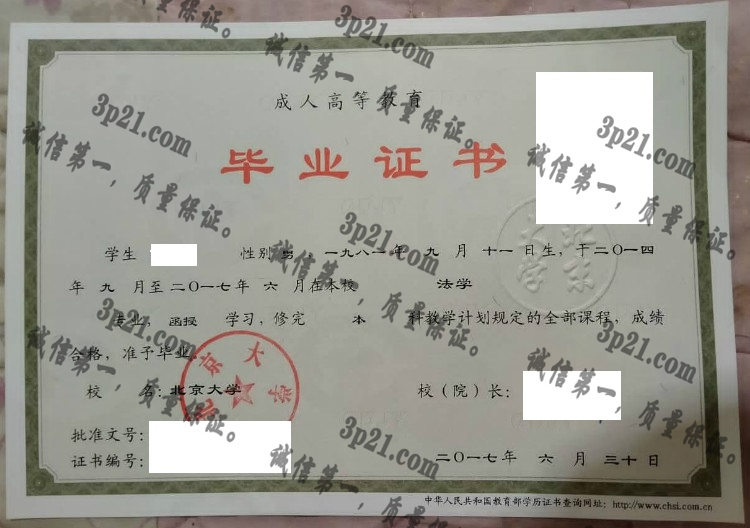 成人高等教育
毕业证书
学生 性别 男 一九八一年 九 月 十一 日生，于二〇一四
年 九 月至二〇一七年 六 月在本校 法学
专业，函授 学习，修完 本 科教学计划规定的全部课程，成绩
合格，准予毕业。
校 名：北京大学
校（院）长：
批准文号：
证书编号：
二〇一七年 六 月 三十日
中华人民共和国教育部学历证书查询网址：http://www.chsi.com.cn
北京大
北京大学
3p21.com
诚信第一，质量保证。
3p21.com
诚信第一，质量保证。
3p21.com
诚信第一，质量保证。
3p21.com
诚信第一，质量保证。
3p21.com
诚信第一，质量保证。
3p21.com
诚信第一，质量保证。
3p21.com
诚信第一，质量保证。
3p21.com
诚信第一，质量保证。